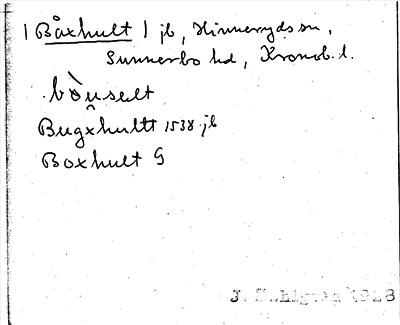 | Båxhult | jb, Hinneryds sn,
Sunnerbo hd, Kronob. l.
bòu̯selt
Bugxhultt 1538 jb
Boxhult G
J. 1928